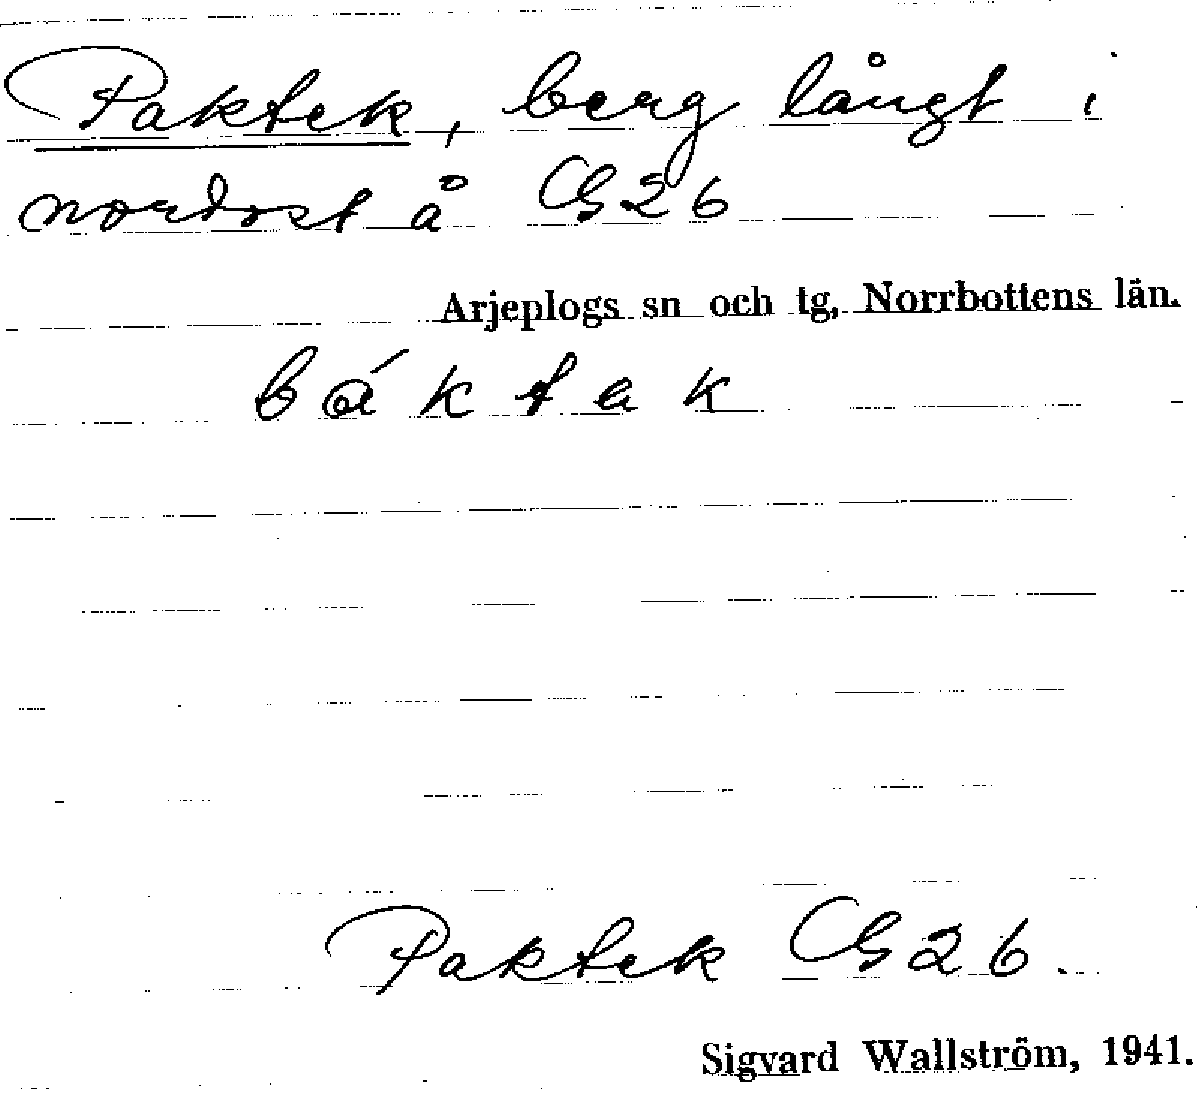 Paktek, berg långt i
nordost å CG26
Arjeplogs sn och tg, Norrbottens län.
báktak
Paktek CG26.
Sigvard Wallström, 1941.